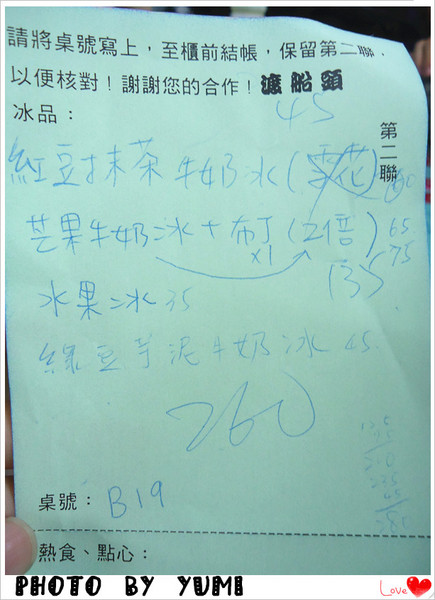 請將桌號寫上，至櫃前結帳，保留第二聯，
以便核對！謝謝您的合作！渡船頭
冰品：
45
第二聯
紅豆抹茶牛奶冰(雪花)
芒果牛奶冰+布丁(2倍) 65
x1 75
135
水果冰 35
綠豆芋泥牛奶冰 45
260
桌號：B19
熱食、點心：
PHOTO BY YUMI
Love